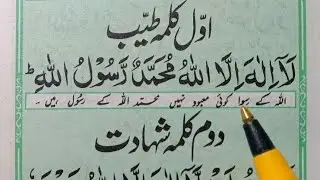 اوّل کلمہ طیّب
لَآ اِلٰهَ اِلَّا اللّٰهُ مُحَمَّدٌ رَّسُوْلُ اللّٰهِ ؕ
اللہ کے سوا کوئی معبود نہیں محمّد اللہ کے رسول ہیں۔
دوم کلمہ شہادت